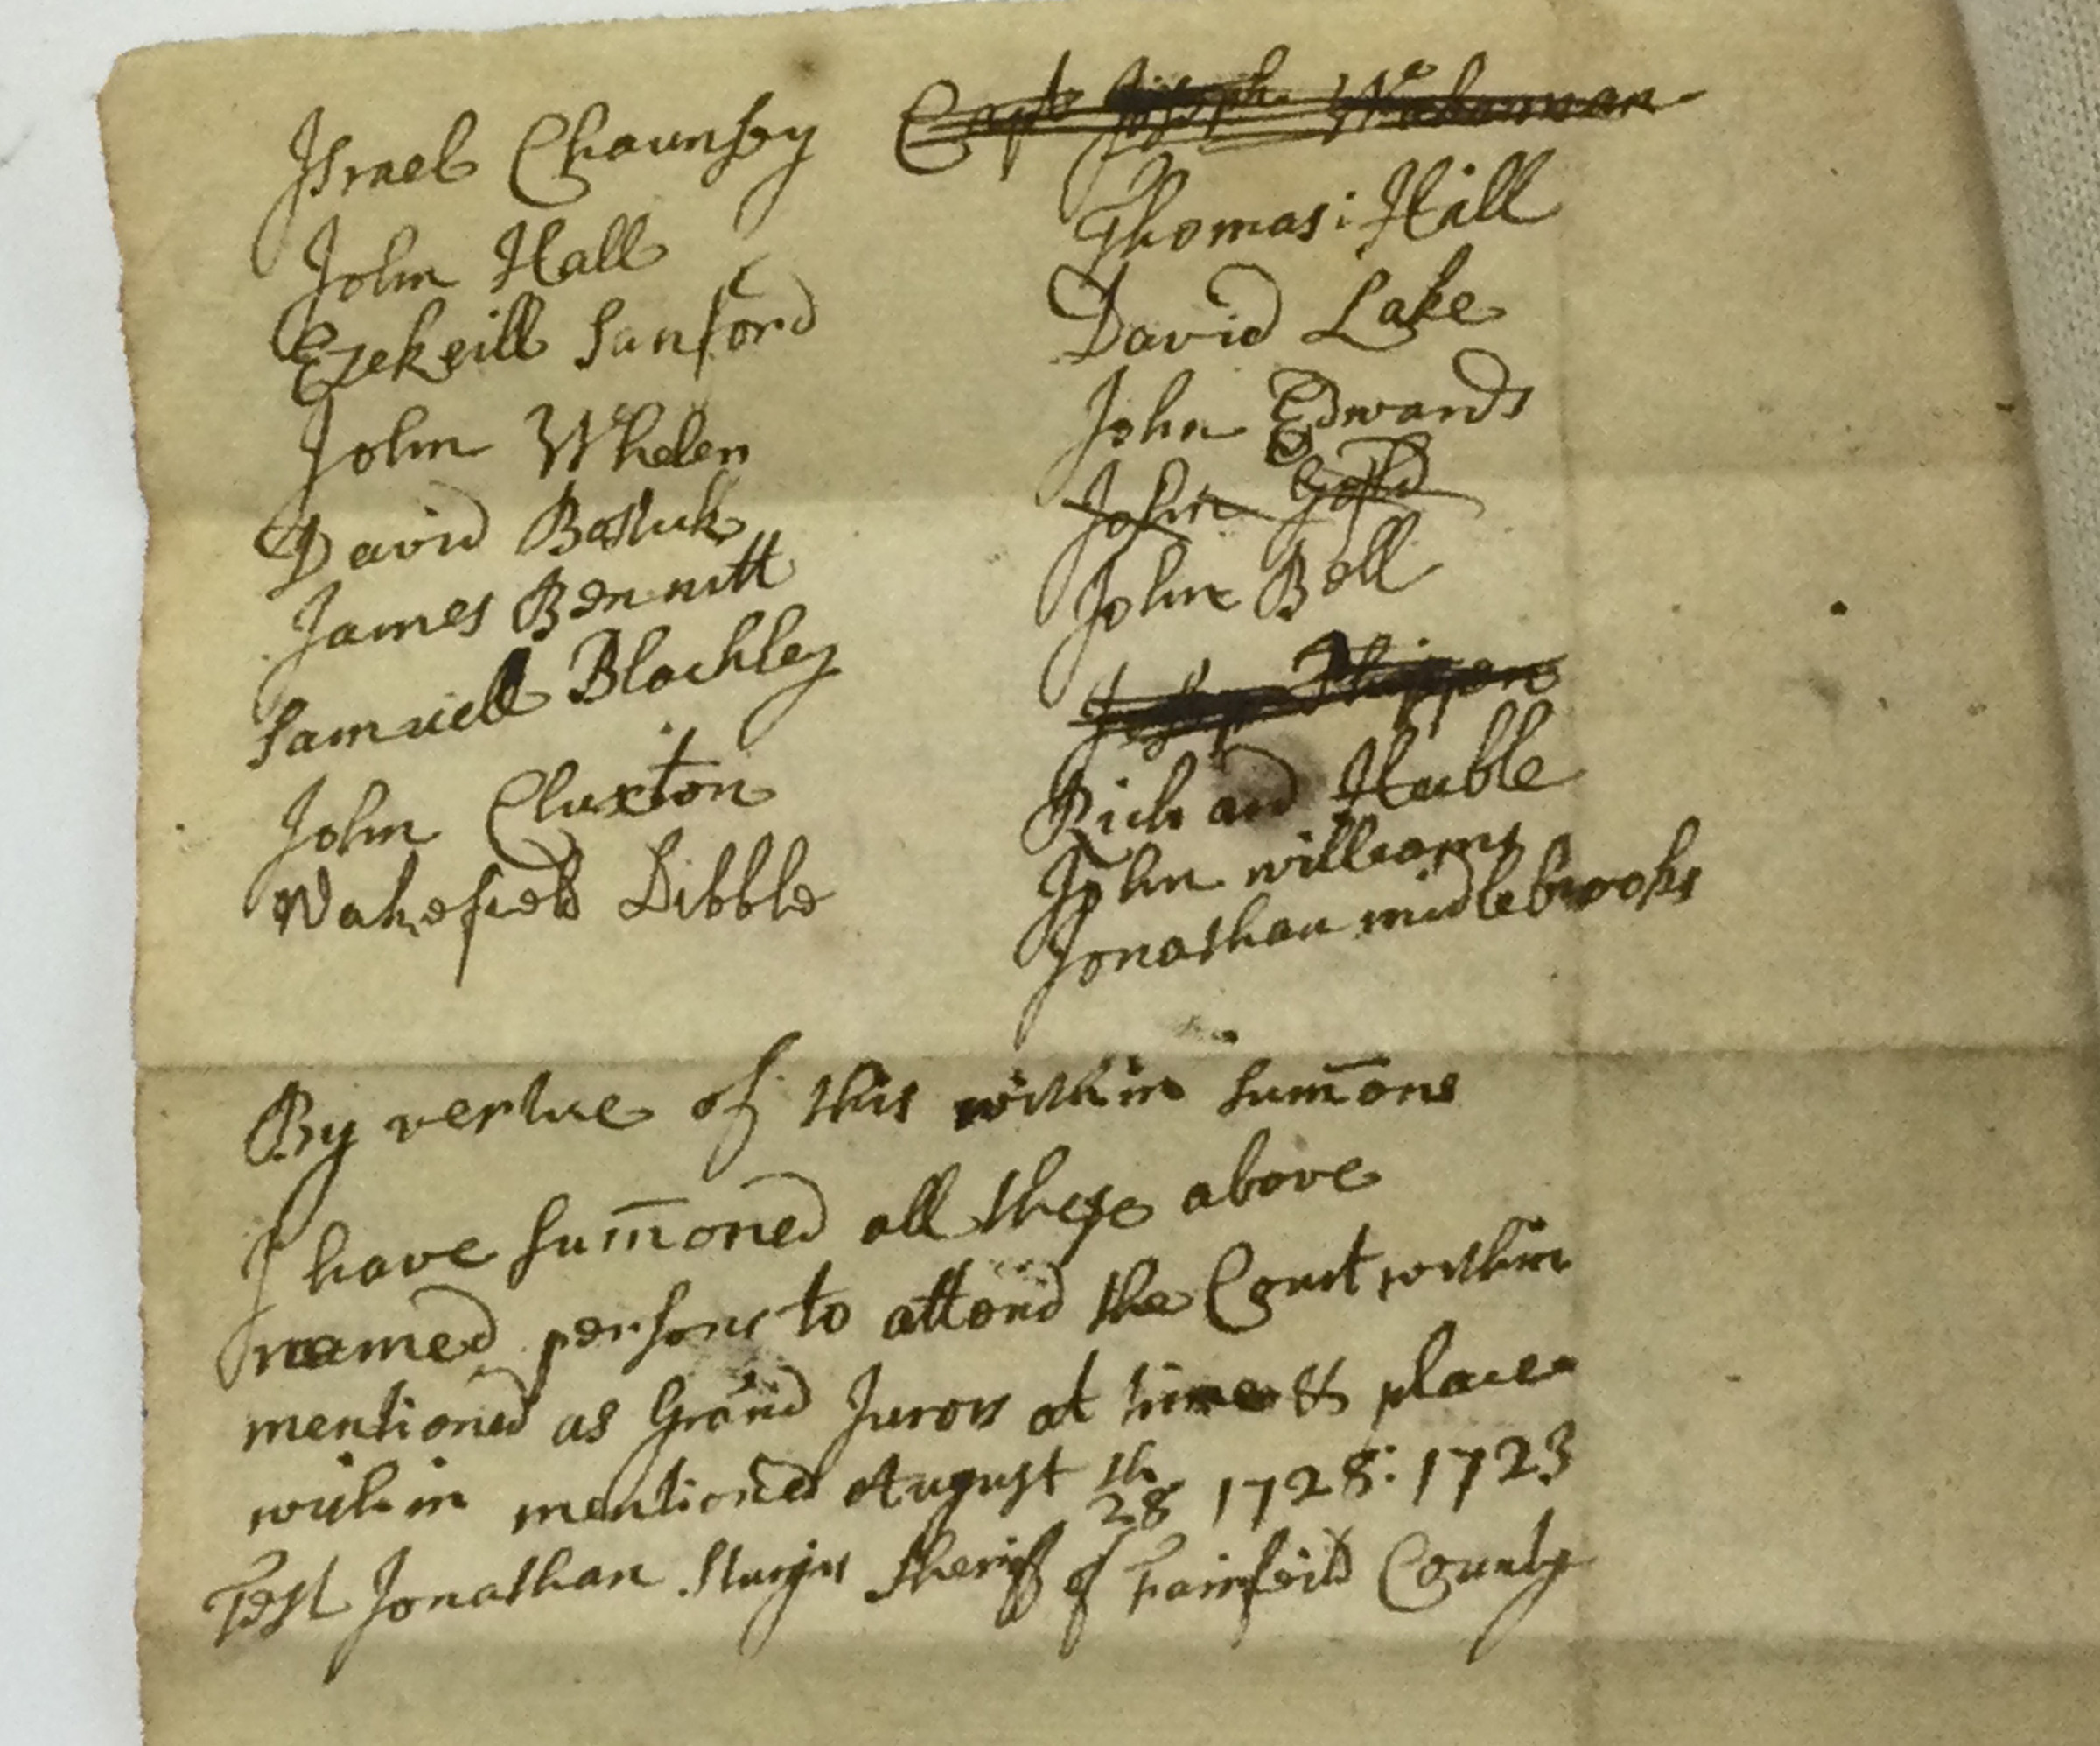 Israel Chaunsey
John Hall
Ezekeill Sanford
John Whelen
David Bostuk
James Bennitt
Samuell Blachley
John Cluxton
Wakefield Dibble
Capt Joseph Wakeman
Thomas: Hill
David Lake
John Edwards
John Gold
John Bell
Phippen
Richard Hubble
John williams
Jonathan midlebrooks
By vertue of this within sum̄ons
I have sum̄oned all these above
named persons to attend the Court within
mentioned as Grand Jurors at time & place
within mentioned August 28th 1728: 1723
Test Jonathan Sturgis Sheriff of Fairfeild County